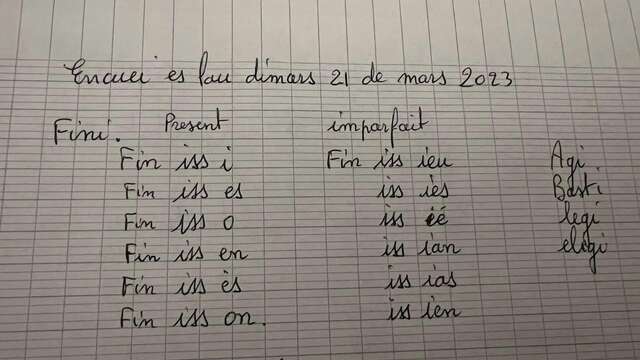 Encuei es lou dimars 21 de mars 2023
Fini. Present imparfait
Fin iss i Fin iss ieu Agi
Fin iss es iss iès Basti
Fin iss o iss ié legi
Fin iss en iss ian elegi
Fin iss ès iss ias
Fin iss on. iss ien